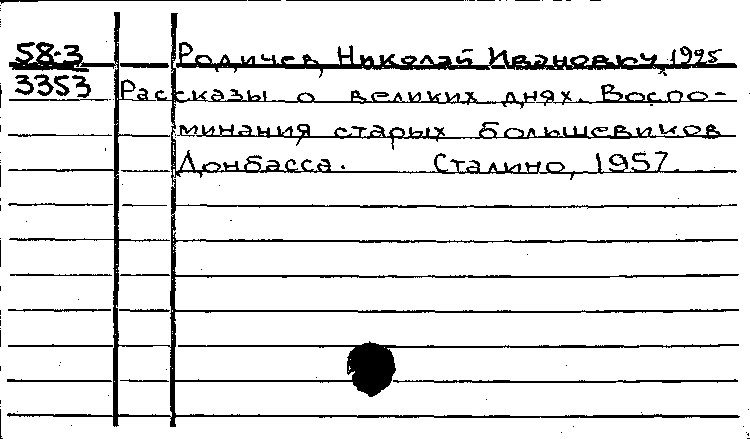 58-3 Родичев, Николай Иванович, 1925
3353 Рассказы о великих днях. Воспо-
минания старых большевиков
Донбасса. Сталино, 1957.